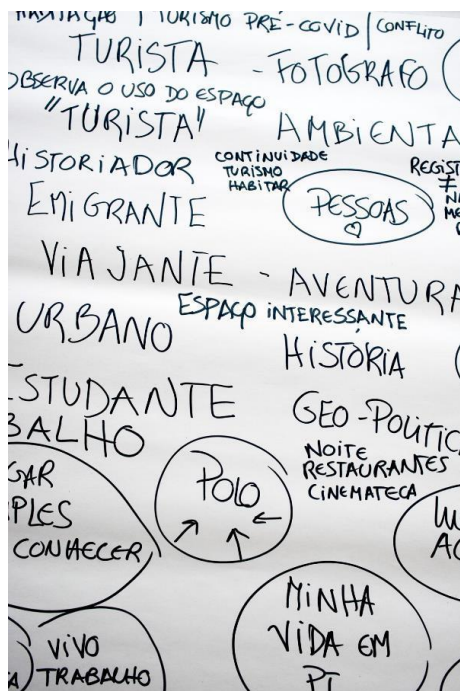 HABITAÇÃO | TURISMO PRÉ-COVID | CONFLITO
TURISTA - FOTÓGRAFO
OBSERVA O USO DO ESPAÇO
"TURISTA" AMBIENTA
HISTORIADOR
CONTINUIDADE
TURISMO
HABITAR
REGIST
≠
EMIGRANTE
PESSOAS
VIAJANTE - AVENTURA
ESPAÇO INTERESSANTE
URBANO
HISTÓRIA
ESTUDANTE
GEO-POLITIC
BALHO
NOITE
RESTAURANTES
CINEMATECA
GAR
PLES
CONHECER
POLO
VIVO
TRABALHO
MINHA
VIDA EM
PT